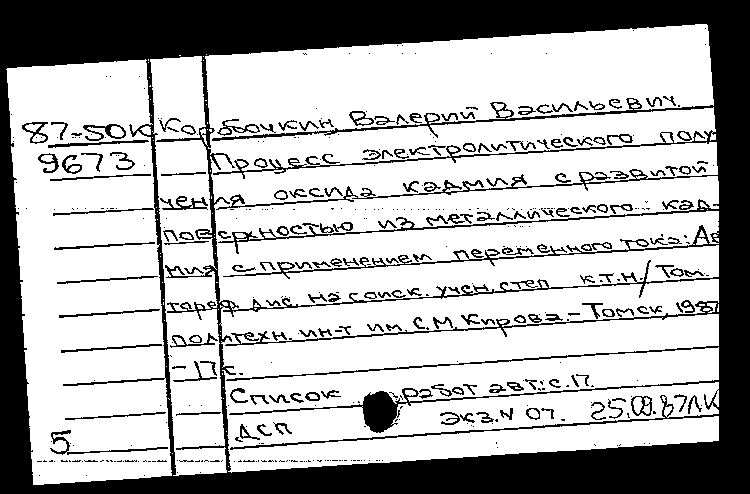 87-50К Коробочкин, Валерий Васильевич
9673 Процесс электролитического полу
чения оксида кадмия с развитой
поверхностью из металлического кад-
мия с применением переменного тока: Ав
тореф дис. на соиск. учен. степ к.т.н./ Том.
политехн. ин-т им. С.М. Кирова.- Томск, 1987
- 17 с.
Список работ авт.: с. 17.
5 ДСП экз. N 07. 25.09.87ЛК